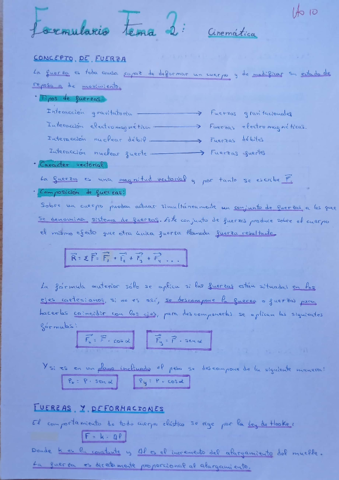 4to 10
Formulario Tema 2: Cinemática
CONCEPTO DE FUERZA
La fuerza es toda causa capaz de deformar un cuerpo y de modificar su estado de
reposo o de movimiento.
· Tipos de fuerzas:
Interacción gravitatoria → Fuerzas gravitacionales
Interacción electromagnética → Fuerzas electromagnéticas
Interacción nuclear débil → Fuerzas débiles
Interacción nuclear fuerte → Fuerzas fuertes
· Carácter vectorial:
La fuerza es una magnitud vectorial y por tanto se escribe F
· Composición de fuerzas:
Sobre un cuerpo pueden actuar simultáneamente un conjunto de fuerzas a las que
se denominan sistema de fuerzas. Este conjunto de fuerzas produce sobre el cuerpo
el mismo efecto que otra única fuerza llamada fuerza resultante.
R = ΣF = F₁ + F₂ + F₃ + F₄ ...
La fórmula anterior sólo se aplica si las fuerzas están situadas en los
ejes cartesianos, si no es así, se descompone la fuerza o fuerzas para
hacerlas coincidir con los ejes, para descomponerlas se aplican las siguientes
fórmulas:
Fₓ = F · cos α Fᵧ = F · sen α
Y si es en un plano inclinado el peso se descompone de la siguiente manera:
Pₓ = P · sen α Pᵧ = P · cos α
FUERZAS Y DEFORMACIONES
El comportamiento de todo cuerpo elástico se rige por la Ley de Hooke:
F = k · Δl
Donde k es la constante y Δl es el incremento del alargamiento del muelle.
La fuerza es directamente proporcional al alargamiento.